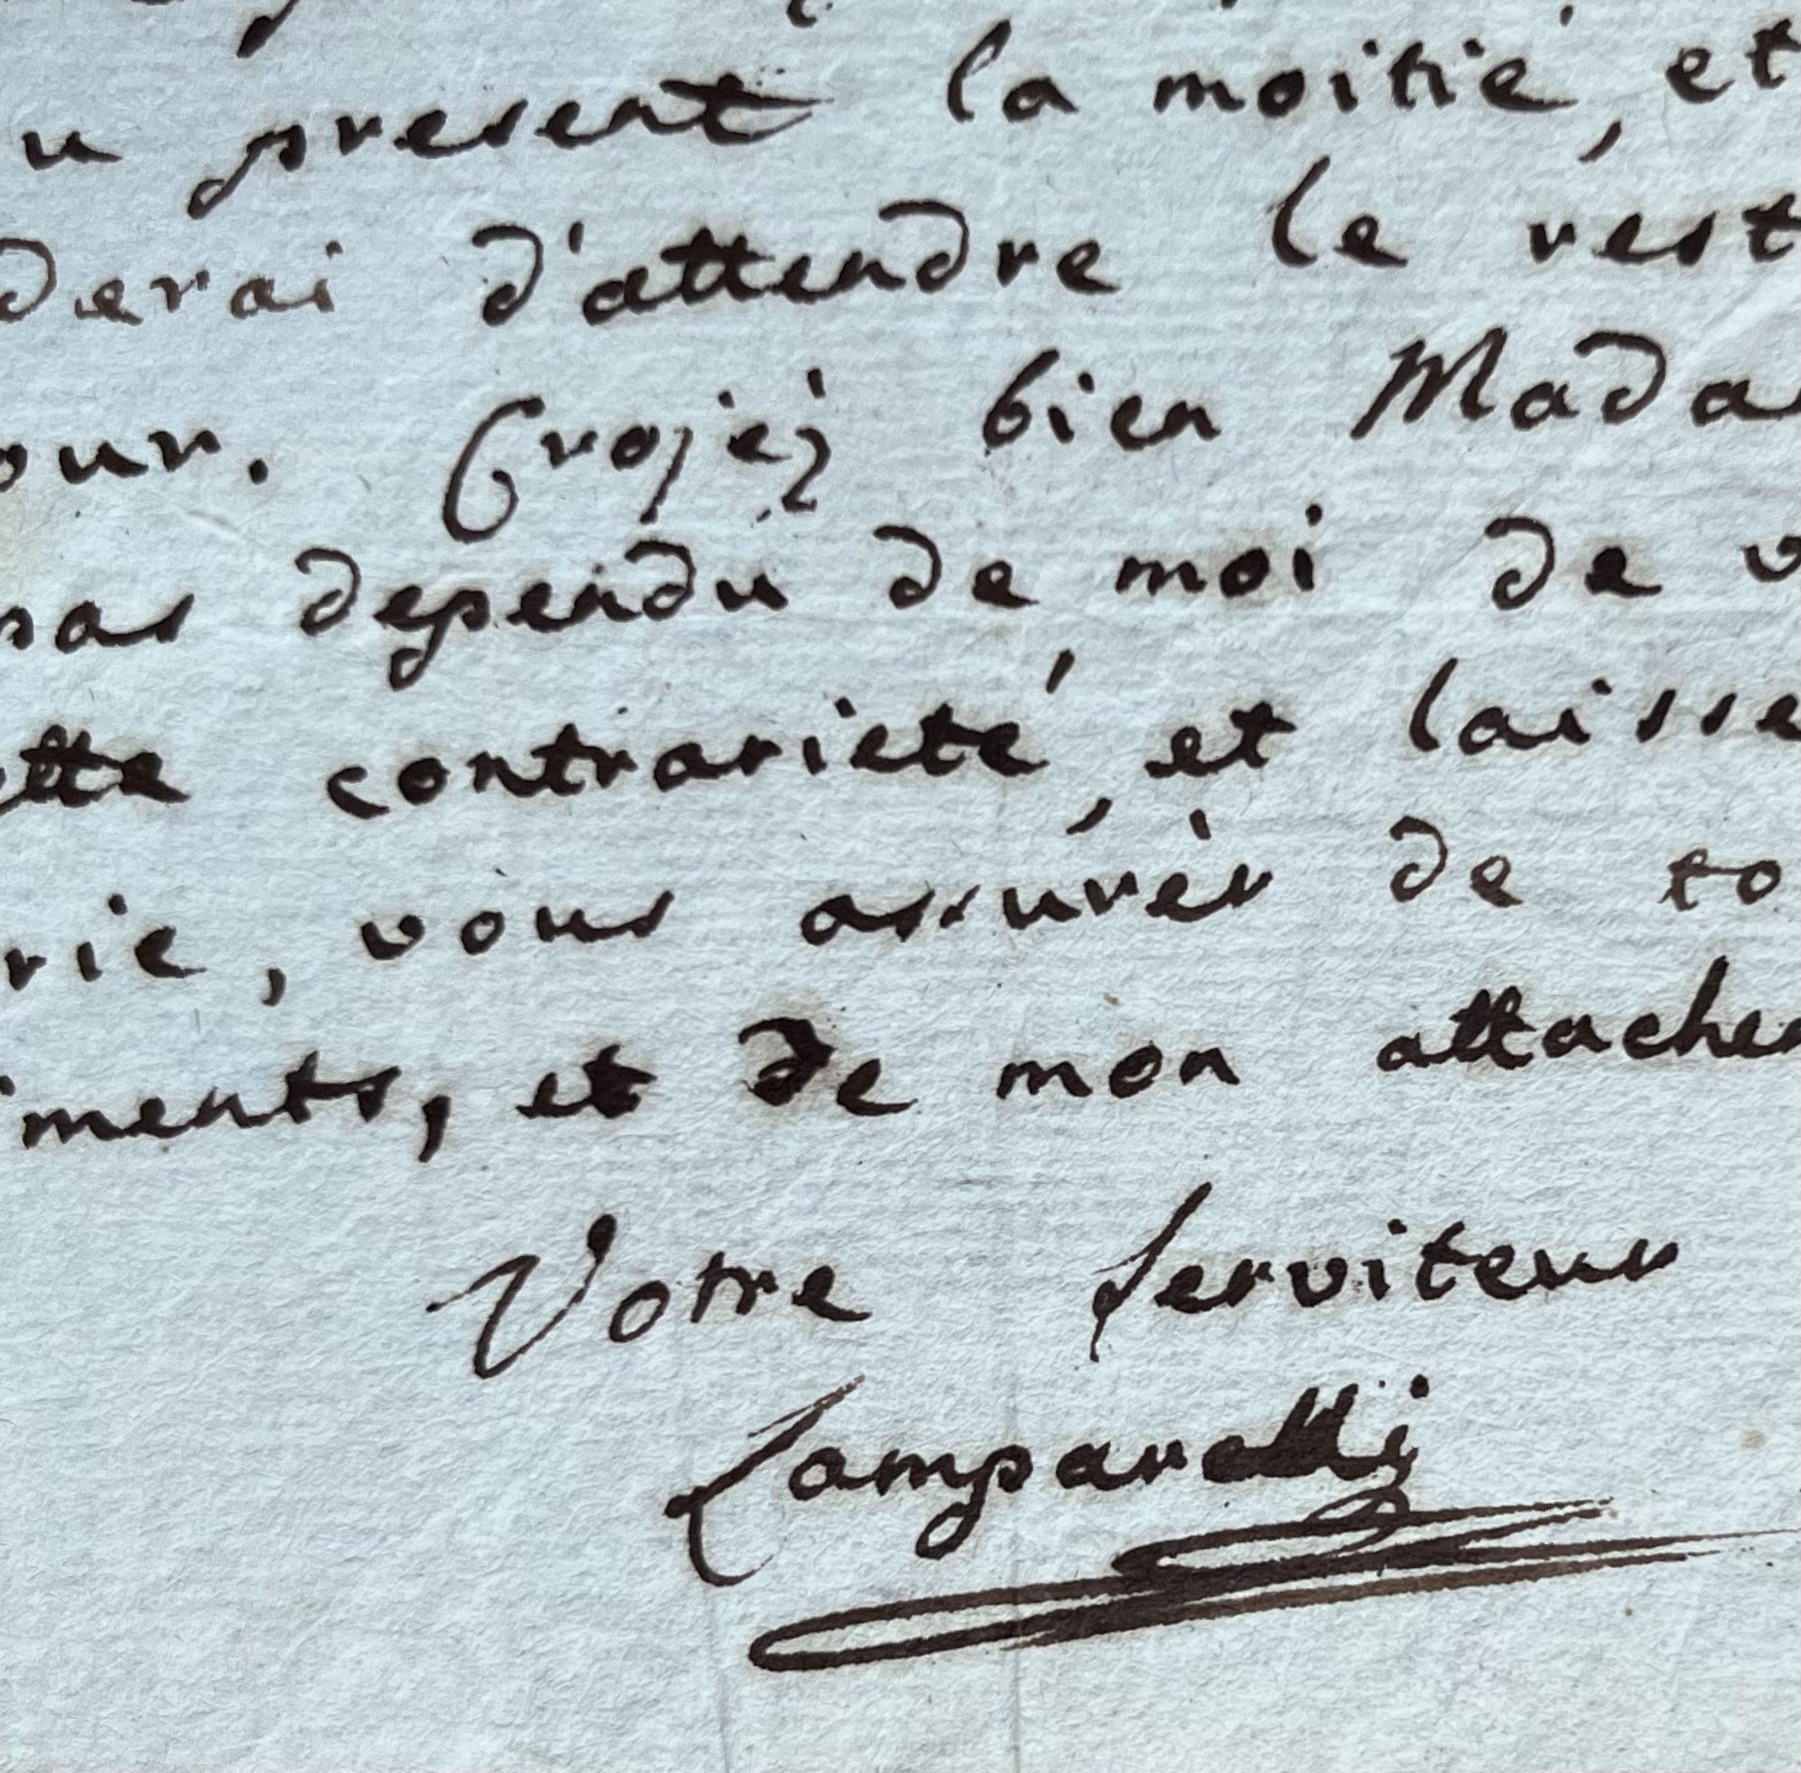 u present la moitié, et
derai d'attendre le rest
our. Crojéz bien Mada
pas dependu de moi de v
ette contrarieté, et laisse
rie, vous assurér de to
iments, et de mon attachem
Votre Serviteur
Camparelli